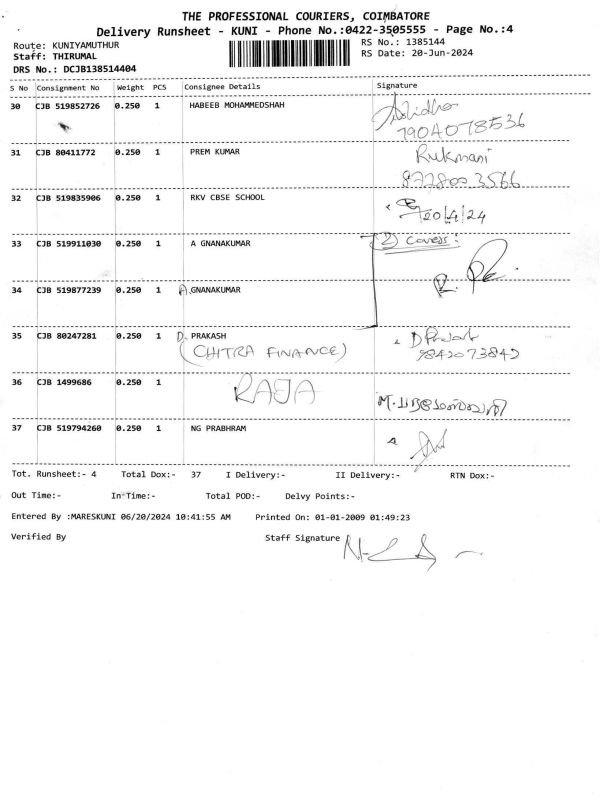 THE PROFESSIONAL COURIERS, COIMBATORE
Delivery Runsheet - KUNI - Phone No.:0422-3505555 - Page No.:4
Route: KUNIYAMUTHUR RS No.: 1385144
Staff: THIRUMAL RS Date: 20-Jun-2024
DRS No.: DCJB138514404
S No Consignment No Weight PCS Consignee Details Signature
30 CJB 519852726 0.250 1 HABEEB MOHAMMEDSHAH
7904078536
31 CJB 80411772 0.250 1 PREM KUMAR Rukmani
8778003566
32 CJB 519835906 0.250 1 RKV CBSE SCHOOL
20/4/24
33 CJB 519911030 0.250 1 A GNANAKUMAR (2) Covers:
34 CJB 519877239 0.250 1 A.GNANAKUMAR
35 CJB 80247281 0.250 1 D. PRAKASH D Prakash
(CHITRA FINANCE) 9842073842
36 CJB 1499686 0.250 1 RAJA
37 CJB 519794260 0.250 1 NG PRABHRAM
Tot. Runsheet:- 4 Total Dox:- 37 I Delivery:- II Delivery:- RTN Dox:-
Out Time:- In Time:- Total POD:- Delvy Points:-
Entered By :MARESKUNI 06/20/2024 10:41:55 AM Printed On: 01-01-2009 01:49:23
Verified By Staff Signature